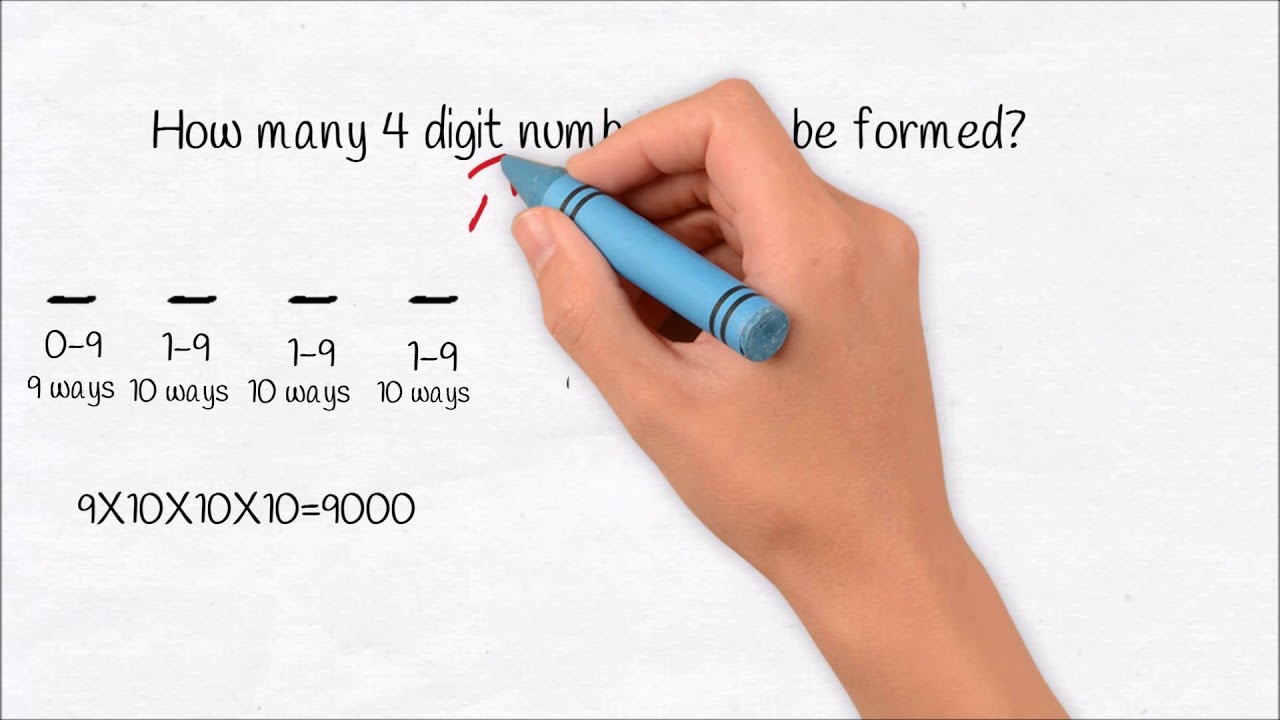 How many 4 digit be formed?
0-9 1-9 1-9 1-9
9 ways 10 ways 10 ways 10 ways
9X10X10X10=9000